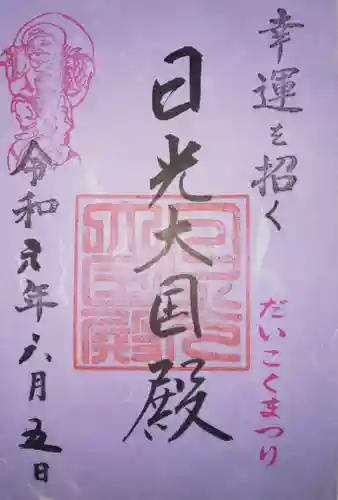 幸運を招く
だいこくまつり
日光大国殿
令和元年六月五日